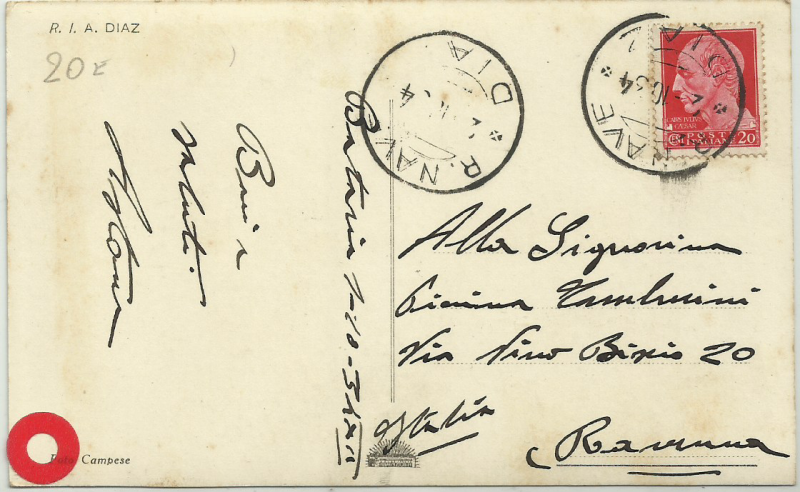 R. I. A. DIAZ
20£
Baci e
saluti
Batavia 1-10-34 XII
R. NAVE DIAZ
2 10 34
CAIVS IVLIVS
CAESAR
POSTE
ITALIANE
20
Alla Signorina
Pierina Tamburini
Via Nino Bixio 20
Italia
Ravenna
Foto Campese